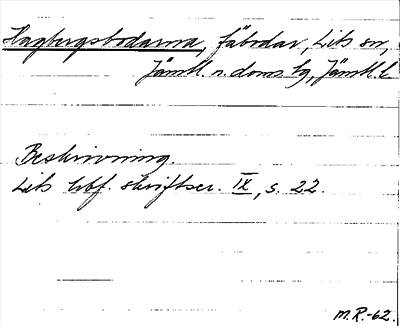 Hagbergsbodarna, fäbodar, Lits sn,
Jämtl. n. doms. bg, Jämtl. l.
Beskrivning.
Lits hbf. skriftser. IX, s. 22.
M.R.-62.